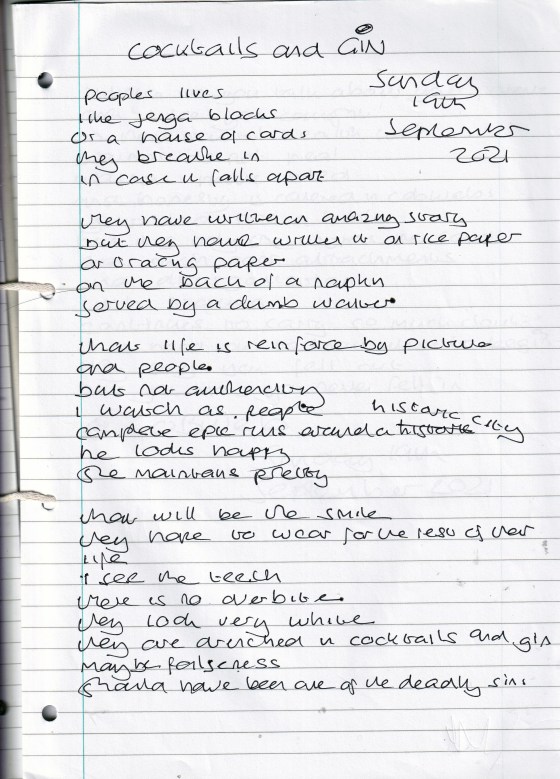 cocktails and GIN
Sunday
19th
September
2021
peoples lives
like jenga blocks
or a house of cards
they breathe in
in case it falls apart
they have written an amazing story
but they have written it on rice paper
or tracing paper
on the back of a napkin
served by a dumb waiter.
their life is reinforce by picture
and people.
but not authenticity
I watch as people
complete epic runs around a historic city
he looks happy
she maintains pretty
that will be the smile
they have to wear for the rest of their
life
I see the teeth
there is no overbite.
they look very white
they are drenched in cocktails and gin
maybe falseness
should have been one of the deadly sins